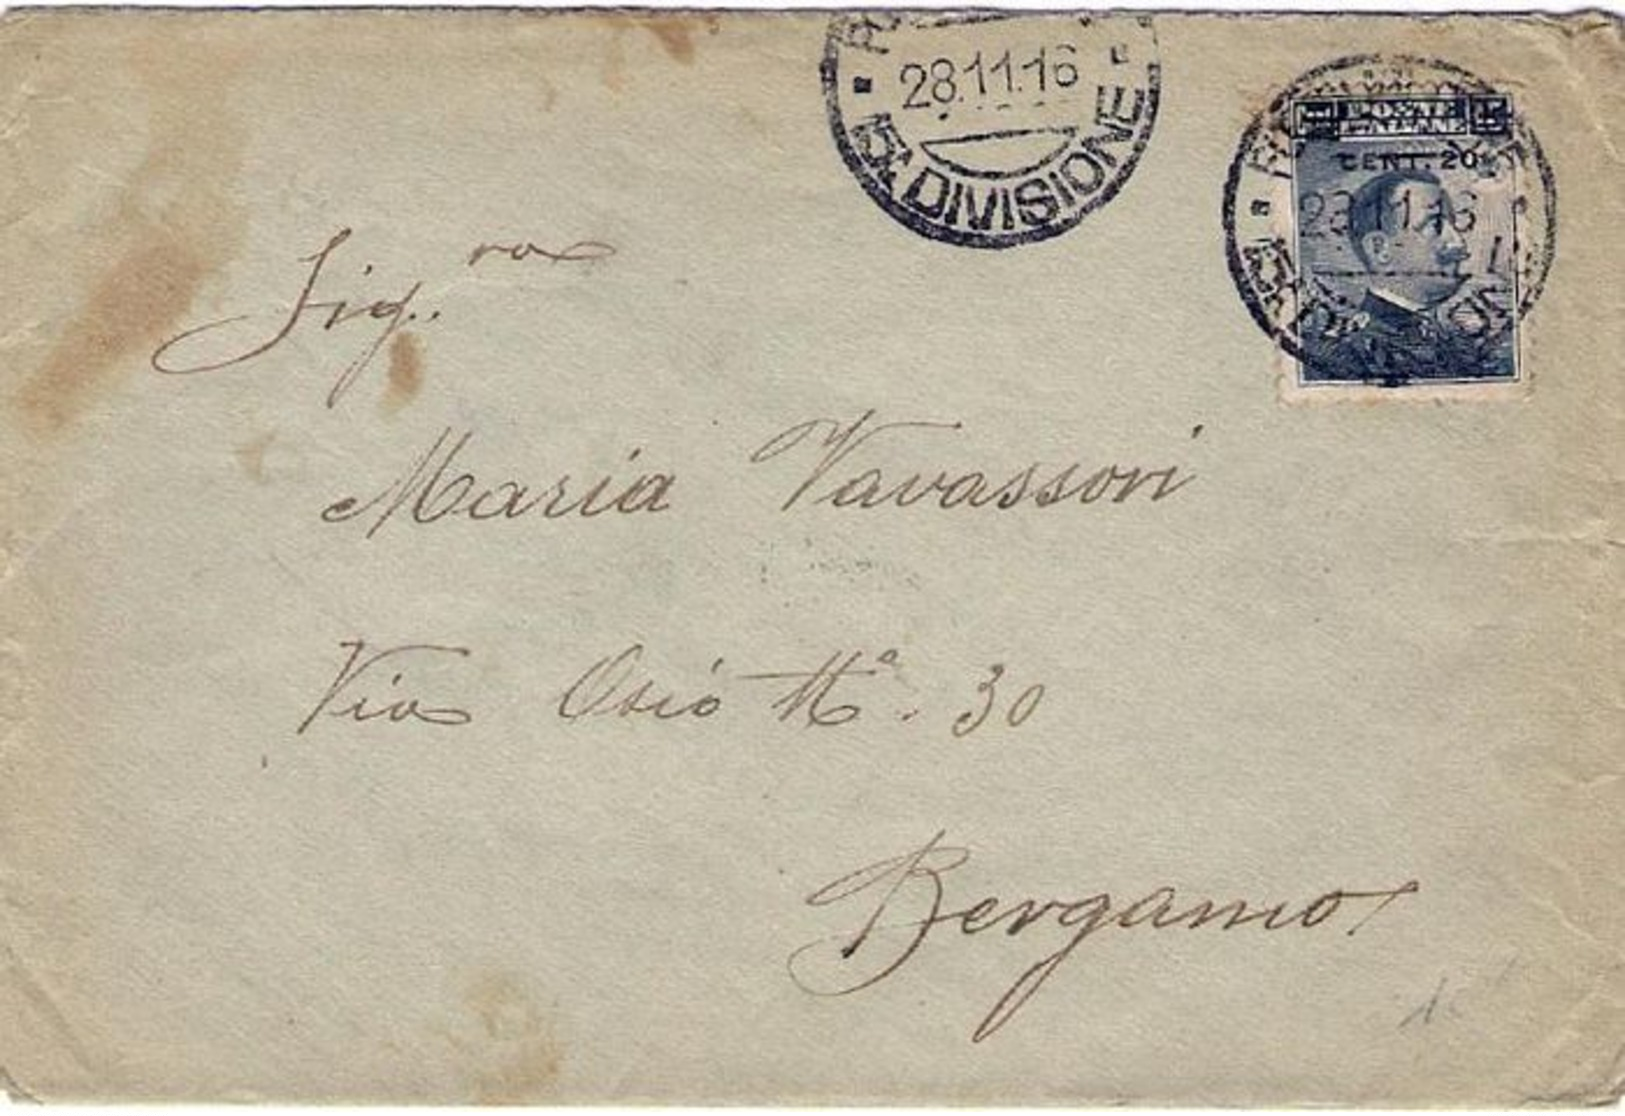 28.11.16
15ª DIVISIONE
15 POSTE ITALIANE 15
CENT. 20
28.11.16
Sig.ra
Maria Vavassori
Via Osio Nº. 30
Bergamo